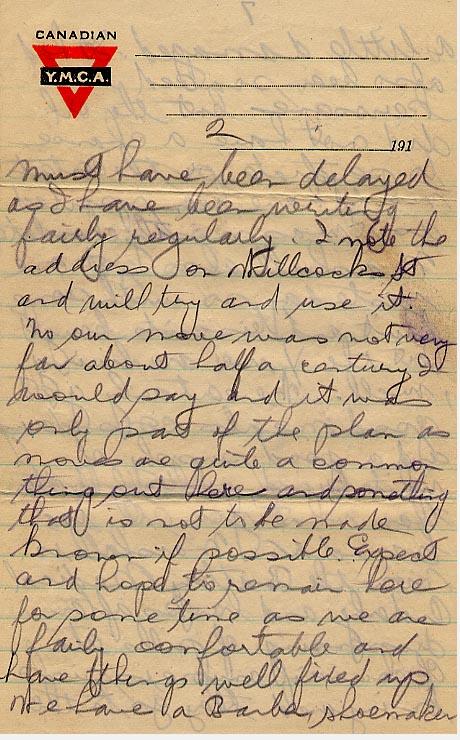 CANADIAN
Y.M.C.A.
2
191
must have been delayed
as I have been writing
fairly regularly. I note the
address on Willcocks St
and will try and use it.
No our move was not very
far about half a century I
would say and it was
only part of the plan as
moves are quite a common
thing out here and something
that is not to be made
known if possible. Expect
and hope to remain here
for some time as we are
fairly comfortable and
have things well fixed up
We have a Barber, shoemaker